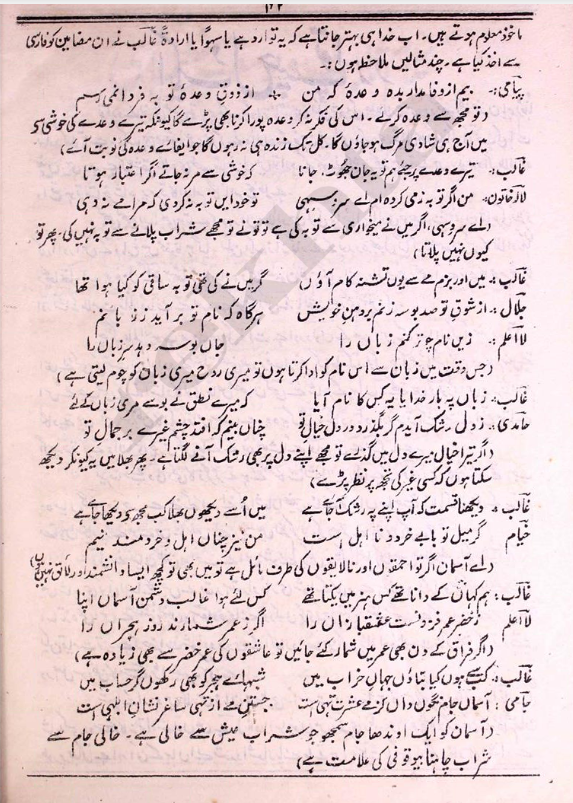 ۱۲۲
ماخوذ معلوم ہوتے ہیں۔ اب خدا ہی بہتر جانتا ہے کہ یہ توارد ہے یا سہواً یا ارادۃً غالب نے ان مضامین کو فارسی
سے اخذ کیا ہے۔ چند مثالیں ملاحظہ ہوں:۔
پیامی:۔ بیم از وفا مدار بدہ وعدۂ کہ من ٭ از ذوقِ وعدۂ تو بہ فردا نمی رسم
(تو مجھ سے وعدہ کرلے۔ اس کی فکر نہ کر وعدہ پورا کرنا بھی پڑے گا کیونکہ تیرے وعدے کی خوشی سے
میں آج ہی شادی مرگ ہو جاؤں گا۔ کل تک زندہ ہی نہ رہوں گا جو ایفائے وعدہ کی نوبت آئے)
غالب:۔ تیرے وعدے پر جئے ہم تو یہ جان جھوٹ جانا کہ خوشی سے مر نہ جاتے اگر اعتبار ہوتا
لالہ خاتون:۔ من اگر توبہ زمی کردہ ام اے سرو سہی تو خود ایں توبہ نہ کردی کہ مرا مے نہ دہی
(اے سرو سہی، اگر میں نے میخواری سے توبہ کی ہے تو تو نے تو مجھے شراب پلانے سے توبہ نہیں کی، پھر تو
کیوں نہیں پلاتا)
غالب:۔ میں اور بزم مے سے یوں تشنہ کام آؤں گر میں نے کی تھی توبہ ساقی کو کیا ہوا تھا
جلال:۔ از شوقِ تو صد بوسہ زنم بر دہنِ خویش ہر گاہ کہ نام تو بر آید ز زبانم
لا اعلم:۔ زیں نام چو تر کنم زباں را جاں بوسہ دہد سرِ زباں را
(جس وقت میں زبان سے اس نام کو ادا کرتا ہوں تو میری روح میری زبان کو چوم لیتی ہے)
غالب:۔ زباں پہ بار خدایا یہ کس کا نام آیا کہ میرے نطق نے بوسے مری زباں کے لئے
حامدی:۔ ز دل رشک آیدم گر بگذرد در دل خیالِ تو چناں بینم کہ افتد چشم غیرے بر جمال تو
(اگر تیرا خیال میرے دل میں گذرے تو مجھے اپنے دل پر بھی رشک آنے لگتا ہے۔ پھر بھلا میں یہ کیونکر دیکھ
سکتا ہوں کہ کسی غیر کی تجھ پر نظر پڑے)
غالب:۔ دیکھنا قسمت کہ آپ اپنے پہ رشک آجائے ہے میں اُسے دیکھوں بھلا کب مجھ سے دیکھا جائے ہے
خیام گر میل تو با بے خرد و نا اہل ست من نیز چناں اہل و خردمند نیم
(اے آسمان اگر تو احمقوں اور نالایقوں کی طرف مائل ہے تو میں بھی تو کچھ ایسا دانشمند اور لائق نہیں ہوں)
غالب:۔ ہم کہاں کے دانا تھے کس ہنر میں یکتا تھے کس لئے ہوا غالب دشمن آسماں اپنا
لا اعلم ز خضر عمر فزونست عشقبازاں را اگر ز عمر شمارند روز ہجراں را
(اگر فراق کے دن بھی عمر میں شمار کئے جائیں تو عاشقوں کی عمر خضر سے بھی زیادہ ہے)
غالب:۔ کب سے ہوں کیا بتاؤں جہانِ خراب میں شبہائے ہجر کو بھی رکھوں گر حساب میں
جامی:۔ آسماں جام نگوں داں کز مے عشرت تہی ست جستن مے از تہی ساغر نشانِ ابلہی ست
(آسمان کو ایک اوندھا جام سمجھو جو شراب عیش سے خالی ہے۔ خالی جام سے
شراب چاہنا بیوقوفی کی علامت ہے)
rekhta